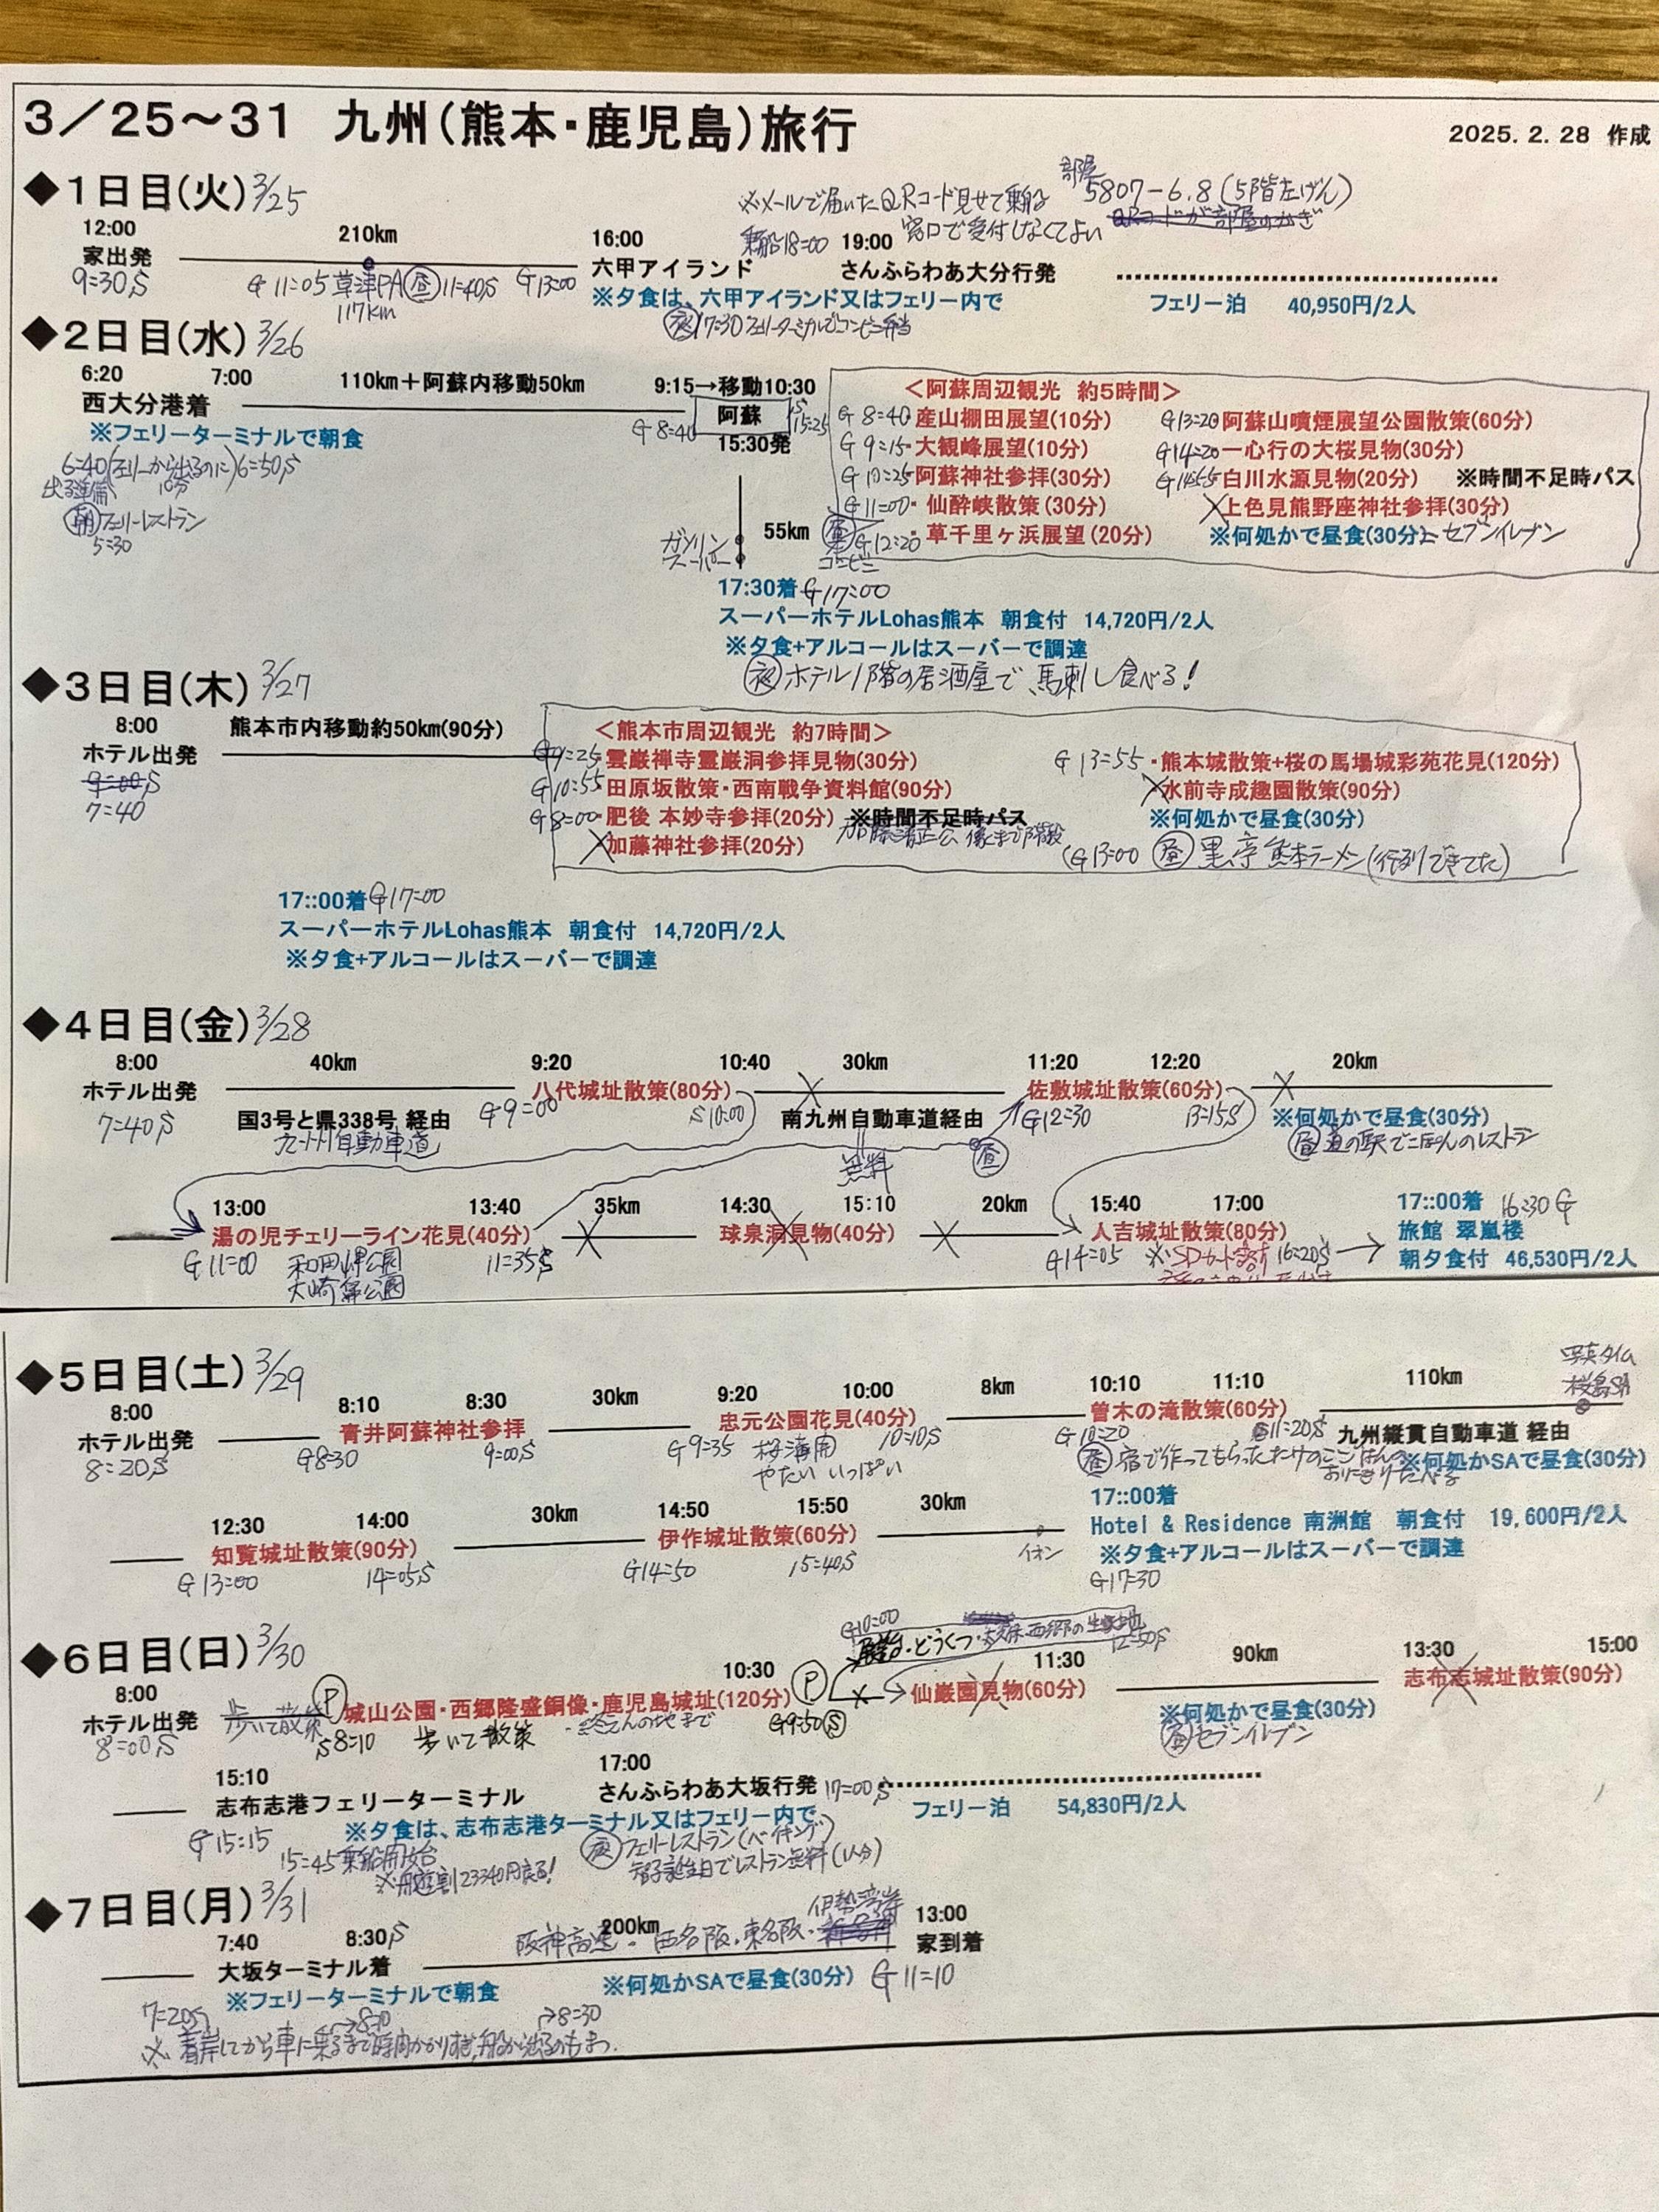 3/25~31 九州(熊本・鹿児島)旅行
2025. 2. 28 作成
◆1日目(火) 3/25
※メールで届いたQRコード見せて乗船
部屋 5807-6.8(5階左げん)
窓口で受付しなくてよい
12:00 210km 16:00 乗船18=00 19:00
家出発 六甲アイランド さんふらわあ大分行発
9=30S G 11=05 草津PA 昼 11=40S G 13=00
117km
※夕食は、六甲アイランド又はフェリー内で
フェリー泊 40,950円/2人
夜 17=30 フェリーターミナルでコンビニ弁当
◆2日目(水) 3/26
6:20 7:00 110km+阿蘇内移動50km 9:15→移動10:30
西大分港着 阿蘇
G 8=40 S 15=25
※フェリーターミナルで朝食 15:30発
6=40(フェリーから出るのに)6=50S
出る準備 10分
朝 フェリーレストラン
5=30
<阿蘇周辺観光 約5時間>
G 8=40 産山棚田展望(10分)
G 9=15・大観峰展望(10分)
G 10=25・阿蘇神社参拝(30分)
G 11=00・仙酔峡散策(30分)
昼 コンビニ G12=20・草千里ヶ浜展望(20分)
G13=20 阿蘇山噴煙展望公園散策(60分)
G14=20 一心行の大桜見物(30分)
G14=55 白川水源見物(20分) ※時間不足時パス
上色見熊野座神社参拝(30分)
※何処かで昼食(30分) セブンイレブン
ガソリン
スーパー
55km
17:30着 G17=00
スーパーホテルLohas熊本 朝食付 14,720円/2人
※夕食+アルコールはスーパーで調達
夜 ホテル1階の居酒屋で、馬刺し食べる!
◆3日目(木) 3/27
8:00 熊本市内移動約50km(90分)
ホテル出発
9=00S
7=40
<熊本市周辺観光 約7時間>
G9=25・雲巌禅寺霊巌洞参拝見物(30分)
G10=55 田原坂散策・西南戦争資料館(90分)
G8=00・肥後 本妙寺参拝(20分) ※時間不足時パス
加藤清正公 像まで階段
加藤神社参拝(20分)
G 13=55 ・熊本城散策+桜の馬場城彩苑花見(120分)
水前寺成趣園散策(90分)
※何処かで昼食(30分)
G13=00 昼 黒亭 熊本ラーメン(行列できてた)
17::00着 G17=00
スーパーホテルLohas熊本 朝食付 14,720円/2人
※夕食+アルコールはスーパーで調達
◆4日目(金) 3/28
8:00 40km 9:20 10:40 30km 11:20 12:20 20km
ホテル出発 八代城址散策(80分) 佐敷城址散策(60分)
7=40S 国3号と県338号 経由 G9=00 S10=00 南九州自動車道経由 G12=30 13=15S ※何処かで昼食(30分)
九州自動車道 無料 昼 昼 道の駅でごはんのレストラン
13:00 13:40 35km 14:30 15:10 20km 15:40 17:00 17::00着 16=30 G
湯の児チェリーライン花見(40分) 球泉洞見物(40分) 人吉城址散策(80分) 旅館 翠嵐楼
G11=00 和田岬公園 11=35S G14=05 ※SDカード 16=20S 朝夕食付 46,530円/2人
大崎鼻公園
◆5日目(土) 3/29
写真タイム
桜島SA
8:00 8:10 8:30 30km 9:20 10:00 8km 10:10 11:10 110km
ホテル出発 青井阿蘇神社参拝 忠元公園花見(40分) 曽木の滝散策(60分) 九州縦貫自動車道 経由
8=20S G8=30 9=00S G9=35 桜満開 10=10S G10=20 11=20S
やたい いっぱい
昼 宿で作ってもらったたけのこごはんのおにぎりたべる ※何処かSAで昼食(30分)
12:30 14:00 30km 14:50 15:50 30km 17::00着
知覧城址散策(90分) 伊作城址散策(60分) Hotel & Residence 南洲館 朝食付 19,600円/2人
G13=00 14=05S G14=50 15=40S イオン ※夕食+アルコールはスーパーで調達
G17=30
◆6日目(日) 3/30
G10=00 ・どうくつ・ 西郷の生誕地 12=50S
8:00 10:30 11:30 90km 13:30 15:00
ホテル出発 歩いて散策 P 城山公園・西郷隆盛銅像・鹿児島城址(120分) P 仙巌園見物(60分) 志布志城址散策(90分)
8=00S S8=10 歩いて散策 ・終えんの地まで G9=50S ※何処かで昼食(30分)
昼 セブンイレブン
15:10 17:00
志布志港フェリーターミナル さんふらわあ大坂行発 17=00S フェリー泊 54,830円/2人
G 15=15 ※夕食は、志布志港ターミナル又はフェリー内で
15=45 乗船開始 夜 フェリーレストラン(バイキング)
※船遊割23340円戻る! 智子誕生日でレストラン無料(1人分)
◆7日目(月) 3/31
7:40 8:30S 200km 13:00
阪神高速・西名阪・東名阪・伊勢湾岸
大坂ターミナル着 家到着
※フェリーターミナルで朝食 ※何処かSAで昼食(30分) G 11=10
7=20S →8=10 →8=30
※着岸してから車に乗るまで時間かかりすぎ,船から出るのもまつ.